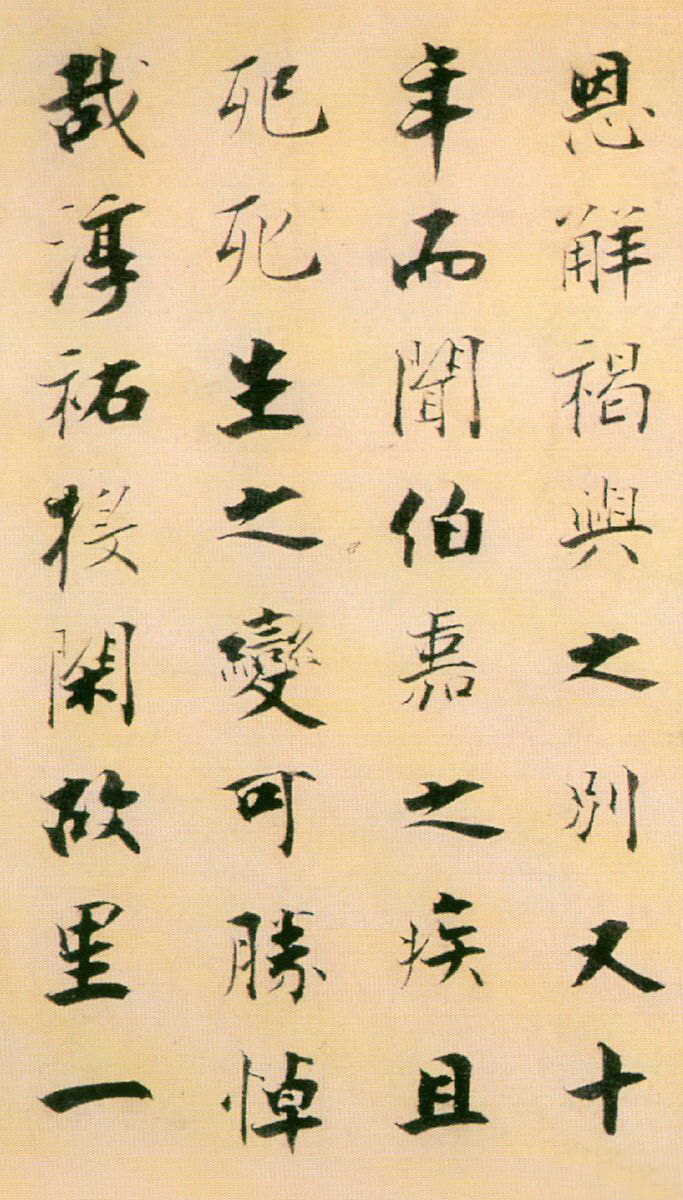 恩解褐與之別又十
年而聞伯嘉之疾且
死死生之變可勝悼
哉淳祐投閑故里一